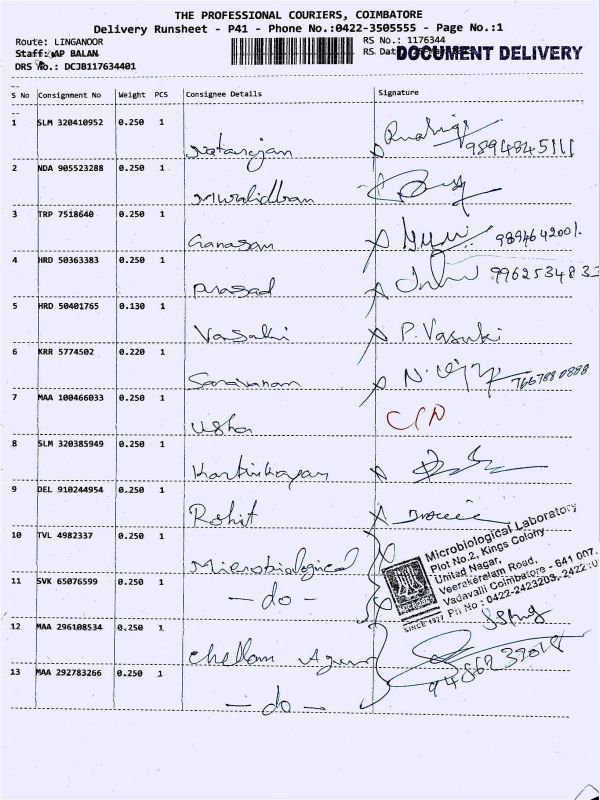 THE PROFESSIONAL COURIERS, COIMBATORE
Delivery Runsheet - P41 - Phone No.:0422-3505555 - Page No.:1
Route: LINGANOOR RS No.: 1176344
Staff: AP BALAN RS Date DOCUMENT DELIVERY
DRS No.: DCJB117634401
S No Consignment No Weight PCS Consignee Details Signature
1 SLM 320410952 0.250 1
Natarajan 9894845111
2 NDA 905523288 0.250 1
Muralidharan
3 TRP 7518640 0.250 1
Ganasan 9894642001.
4 HRD 50363383 0.250 1
Prasad 9962534833
5 HRD 50401765 0.130 1
Vasaki P. Vasuki
6 KRR 5774502 0.220 1
Saravanan
7 MAA 100466033 0.250 1
Usha C/N
8 SLM 320385949 0.250 1
Karthikayan
9 DEL 910244954 0.250 1
Rohit
10 TVL 4982337 0.250 1
Microbiological
Microbiological Laboratory
Plot No.2, Kings Colony
United Nagar,
Veerakeralam Road,
Vadavalli Coimbatore - 641 007.
Ph No : 0422-2423203,
SINCE 1977
11 SVK 65076599 0.250 1
- do -
12 MAA 296108534 0.250 1
Chellam
13 MAA 292783266 0.250 1
- do -